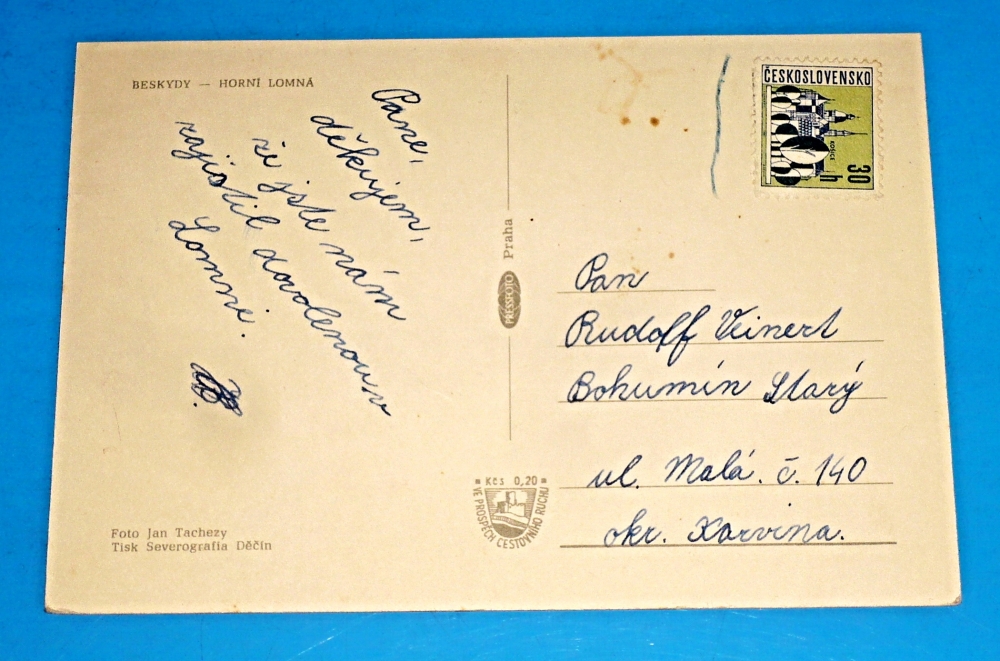 BESKYDY — HORNÍ LOMNÁ
Pane,
děkujem,
že jste nám
zajistil dovolenou v
Lomné.
Foto Jan Tachezy
Tisk Severografia Děčín
PRESSFOTO Praha
Kčs 0,20
VE PROSPĚCH CESTOVNÍHO RUCHU
ČESKOSLOVENSKO
KOŠICE
30 h
Pan
Rudolf Veinert
Bohumín Starý
ul. Malá. č. 140
okr. Karvina.